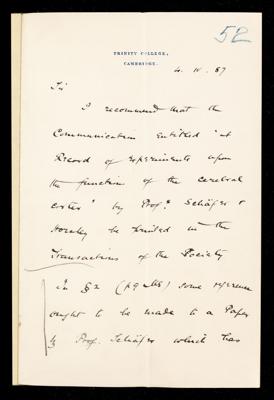 52
TRINITY COLLEGE,
CAMBRIDGE.
4. IV. 87
Sir
I recommend that the
Communication Entitled "A
Record of experiments upon
the function of the cerebral
cortex" by Profs. Schäfer &
Horsley be printed in the
Transactions of the Society
In § 2 (p. 9 MS) some reference
ought to be made to a Paper
by Prof. Schäfer which has